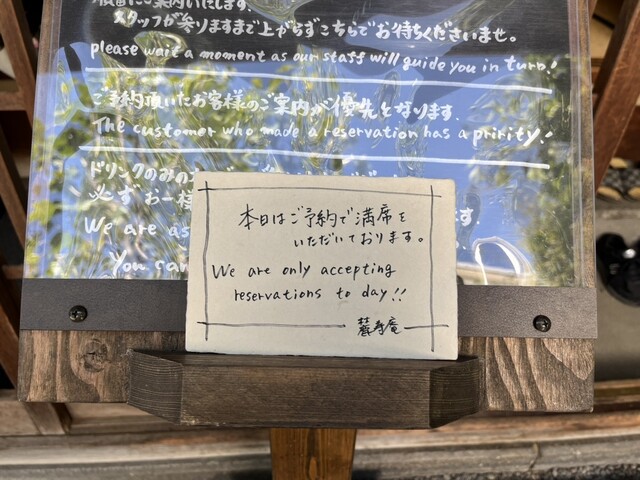 順番にご案内いたします。
スタッフが参りますまで上がらずこちらでお待ちくださいませ。
please wait a moment as our staff will guide you in turn!
ご予約頂いたお客様のご案内が優先となります.
The customer who made a reservation has a pririty!
ドリンクのみの
必ずお一様
We are as
You can
本日はご予約で満席を
いただいております。
We are only accepting
reservations to day!!
麓寿庵